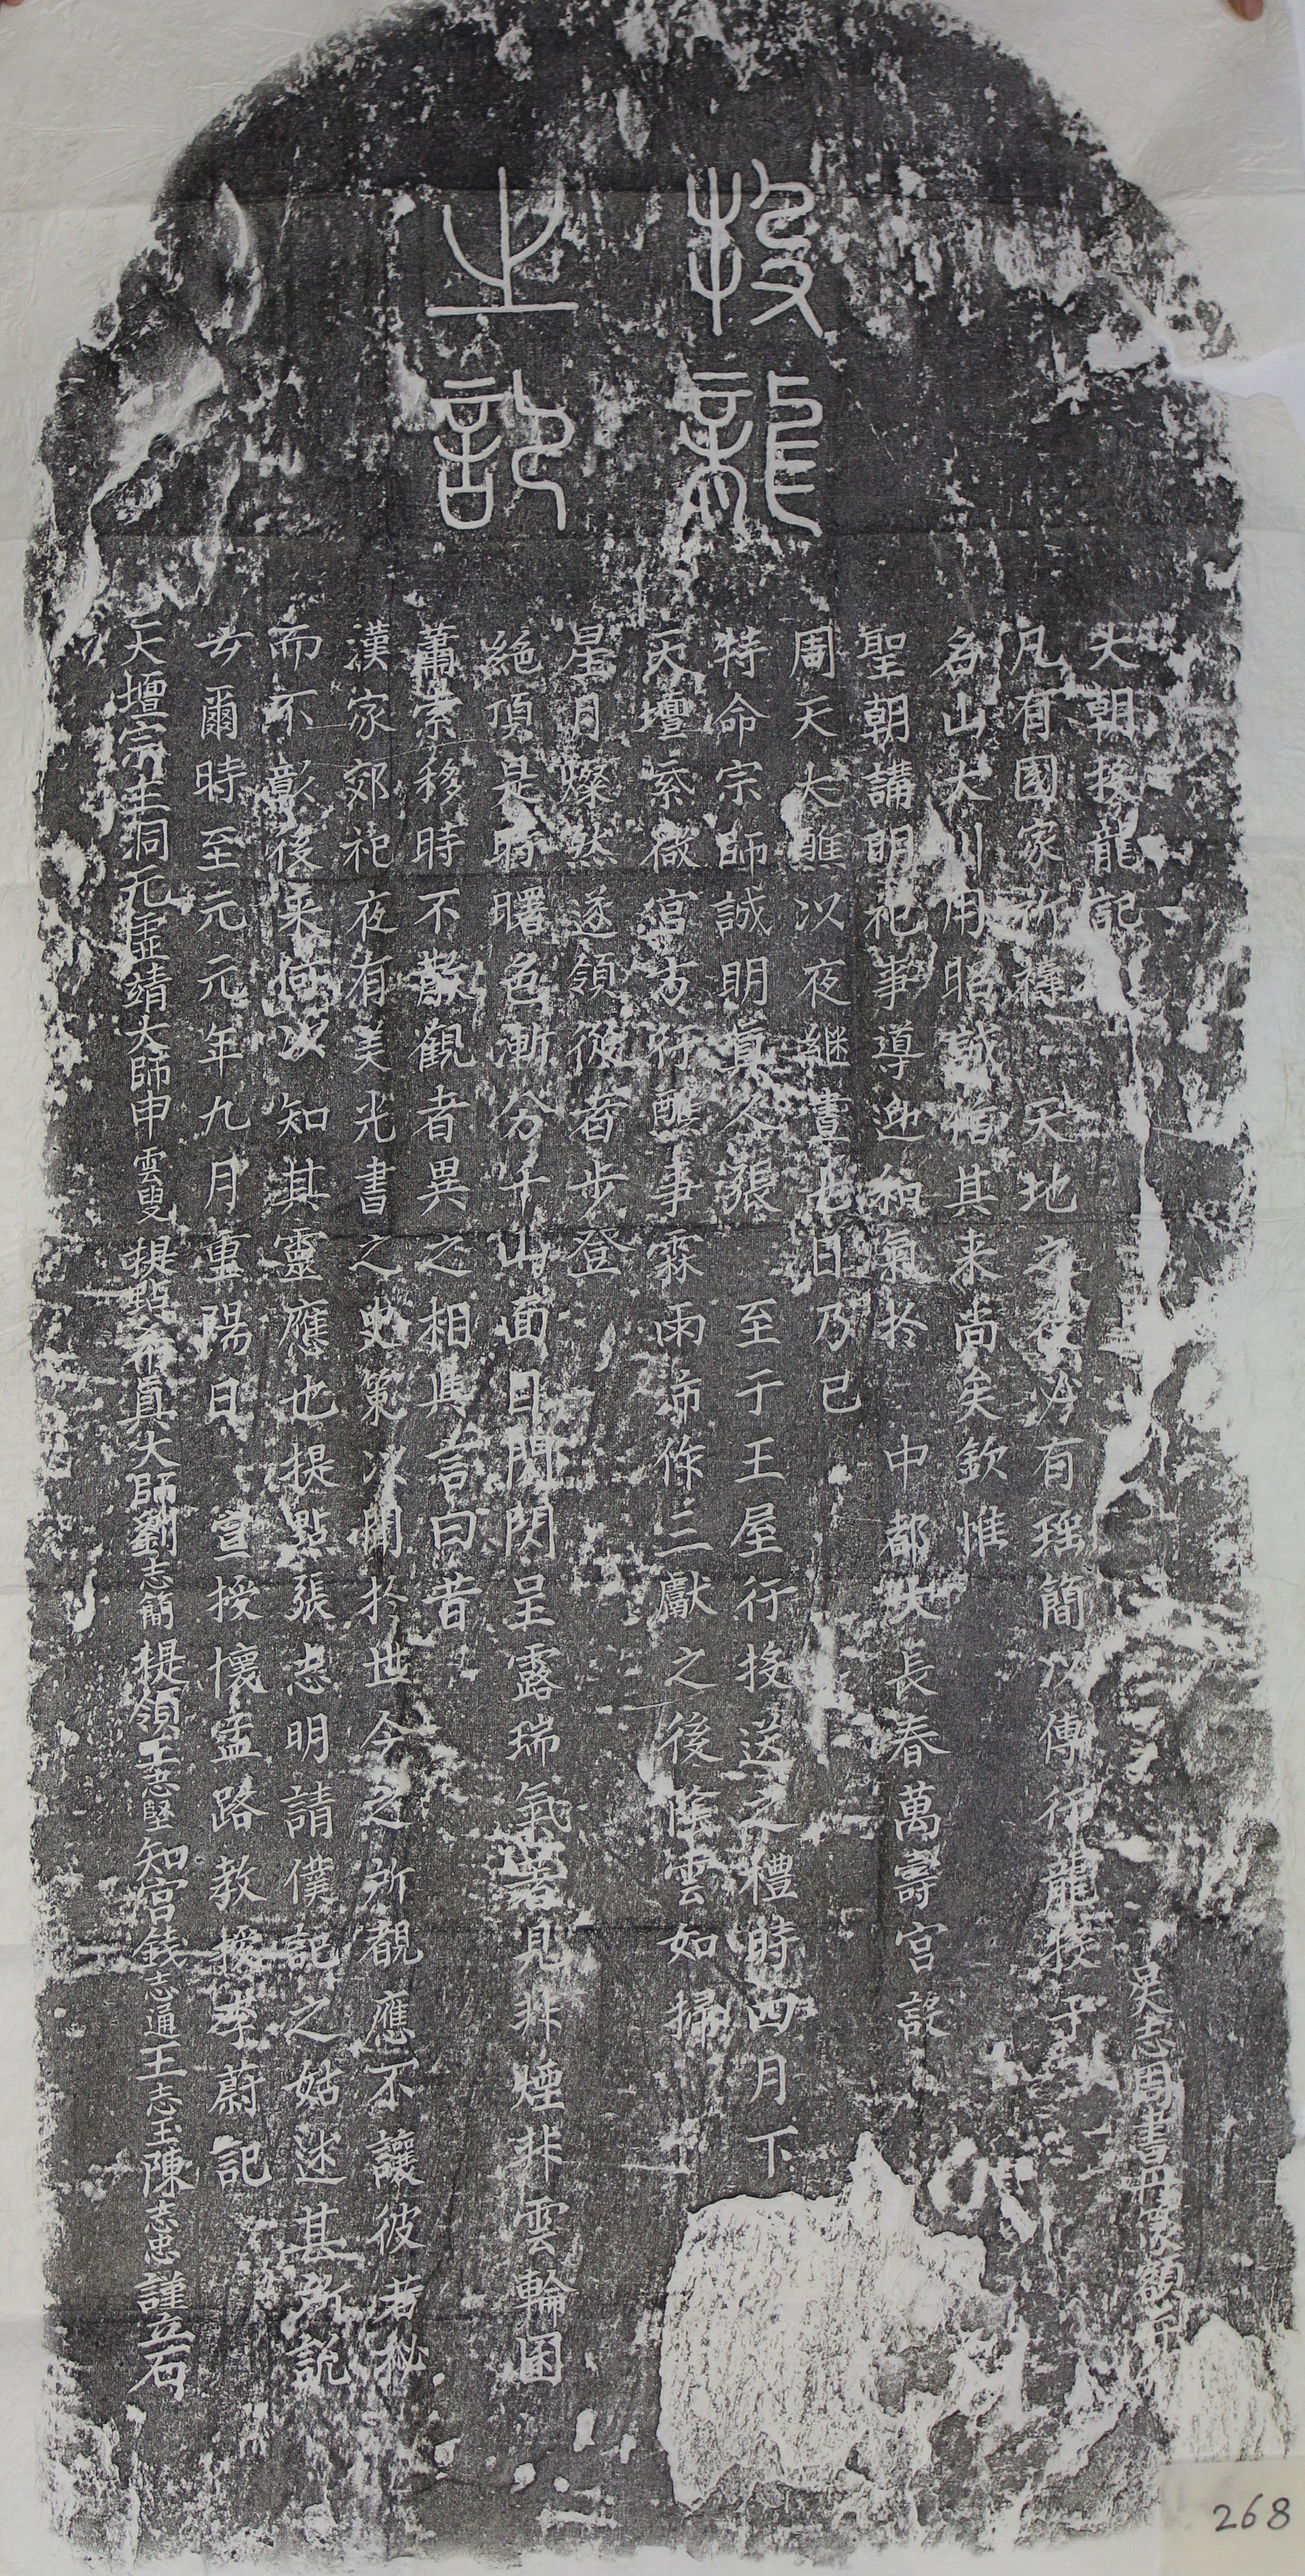 投龍
之記
大朝投龍記
吳志周書丹
凡有國家祈禱天地之後必有瑶簡以傳行龍投于
名山大川用昭誠恪其来尚矣欽惟
聖朝講明祀事導迎和氣於中都大長春萬壽宫設
周天大醮以夜継晝七日乃已
特命宗師誠明真人張至于王屋行投送之禮時四月下
天壇紫微宫方行醮事霖雨沛作三獻之後陰雲如掃
星月燦然遂領從者步登
絶頂是時曙色漸分千山面目閃閃呈露瑞氣著見非煙非雲輪囷
蕭索移時不散觀者異之相與言曰昔
漢家郊祀夜有美光書之史策以開於世今之所覩應不讓彼若秘
而不彰後来何以知其靈應也提點張志明請僕記之姑述其所説
云爾時至元元年九月重陽日宣授懷孟路教授李蔚記
天壇宗主洞元虛靖大師申雲叟提點希真大師劉志簡提領王志堅知宫錢志通王志玉陳志忠謹立石
268